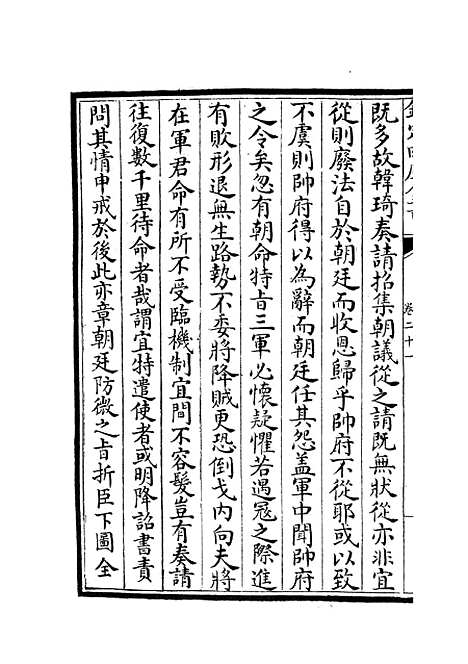 欽定四庫全書
卷二十一
既多故韓琦奏請招集朝議從之請既無狀從亦非宜
從則廢法自於朝廷而收恩歸乎帥府不從耶或以致
不虞則帥府得以為辭而朝廷任其怨盖軍中聞帥府
之令矣忽有朝命特旨三軍必懷疑懼若遇冦之際進
有敗形退無生路勢不委將降賊更恐倒戈内向夫將
在軍君命有所不受臨機制宜間不容髮豈有奏請
往復數千里待命者哉謂宜特遣使者或明降詔書責
問其情申戒於後此亦章朝廷防微之旨折臣下圖全